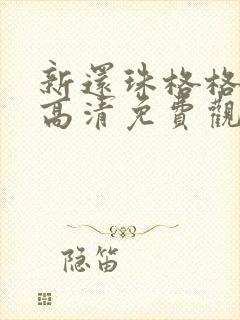 新還珠格格
高清免費觀
隐笛